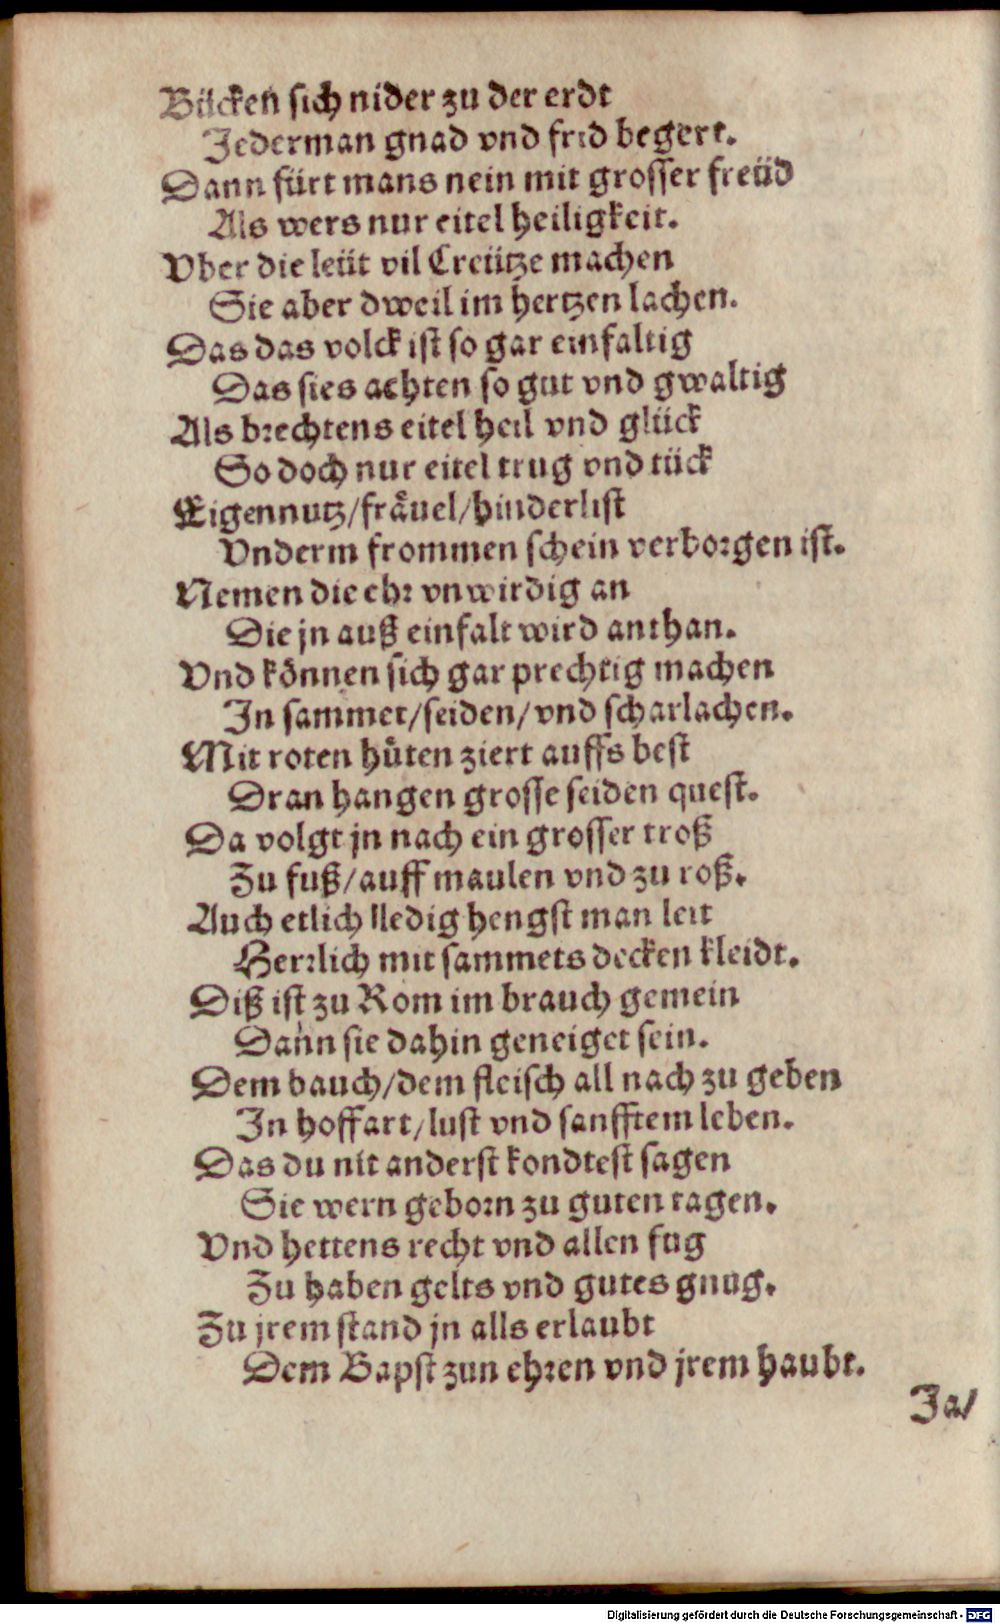 Bücken sich nider zu der erdt
Jederman gnad vnd frid begert.
Dann fürt mans nein mit grosser freüd
Als wers nur eitel heiligkeit.
Vber die leüt vil Creütze machen
Sie aber dweil im hertzen lachen.
Das das volck ist so gar einfaltig
Das sies achten so gut vnd gwaltig
Als brechtens eitel heil vnd glück
So doch nur eitel trug vnd tück
Eigennutz/fråuel/hinderlist
Vnderm frommen schein verborgen ist.
Nemen die ehr vnwirdig an
Die jn auß einfalt wird anthan.
Vnd können sich gar prechtig machen
In sammet/seiden/vnd scharlachen.
Mit roten hůten ziert auffs best
Dran hangen grosse seiden quest.
Da volgt jn nach ein grosser troß
Zu fuß/auff maulen vnd zu roß.
Auch etlich lledig hengst man leit
Herrlich mit sammets decken kleidt.
Diß ist zu Rom im brauch gemein
Dann sie dahin geneiget sein.
Dem bauch/dem fleisch all nach zu geben
In hoffart/lust vnd sanfftem leben.
Das du nit anderst kondtest sagen
Sie wern geborn zu guten tagen.
Vnd hettens recht vnd allen fug
Zu haben gelts vnd gutes gnug.
Zu jrem stand jn alls erlaubt
Dem Bapst zun ehren vnd jrem haubt.
Ja/
Digitalisierung gefördert durch die Deutsche Forschungsgemeinschaft - DFG